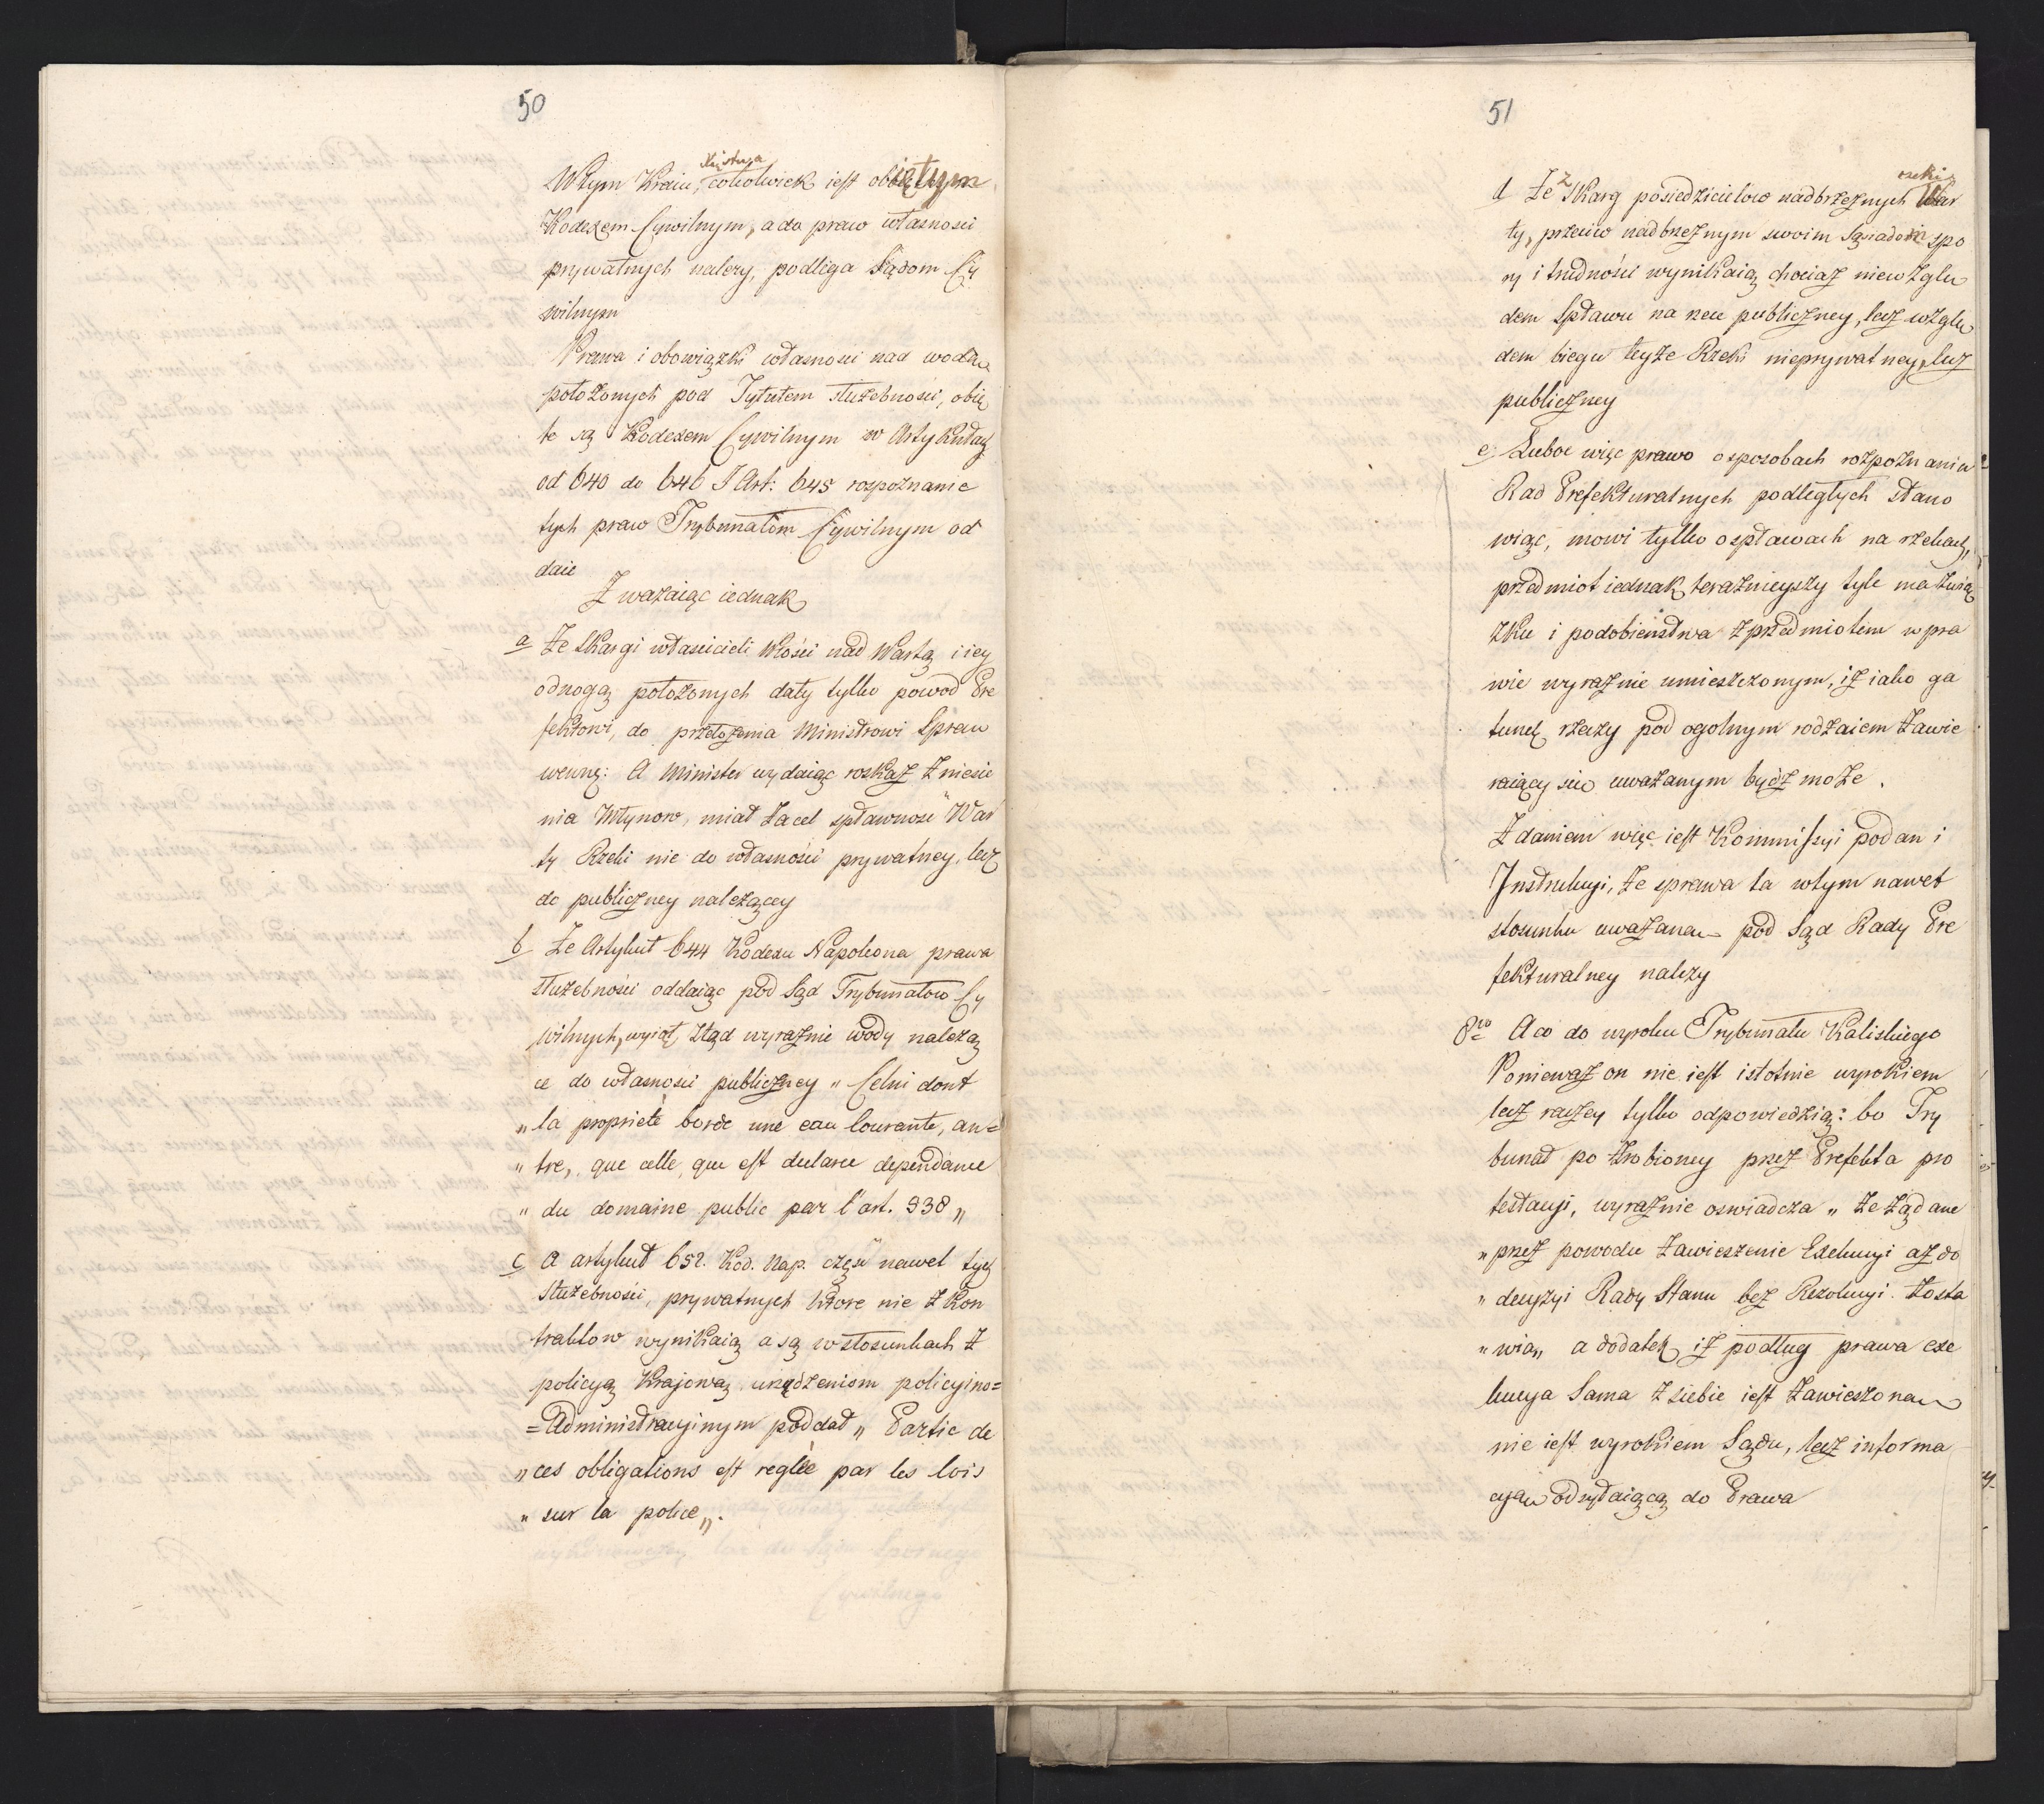 50
W tym Kraiu, cokolwiek iest obiętym
Kodexem Cywilnym, a do praw własnosci
prywatnych nalezy, podlega Sądom Cy
wilnym
Prawa i obowiązki własnosci nad wodą
położonych pod Tytułem służebnosci, obię
te są Kodexem Cywilnym w Artykułach
od 640 do 646 I Art: 645 rozpoznanie
tych praw Trybunałom Cywilnym od
daie
Zważaiąc iednak
a Że Skargi własicieli Włosci nad Wartą i iey
odnogą położonych dały tylko powod Pre
fektowi, do przełożenia Ministrowi Spraw
wewnę: A Minister wydaiąc roskaz zniesie
nia Młynow, miał za cel spławnosć War
ty Rzeki nie do własności prywatney, lecz
do publiczney należącey
b Że Artykuł 644 Kodexu Napoleona prawa
służebnosci oddaiąc pod Sąd Trybunałow Cy
wilnych, wyiął ztąd wyraznie wody należą
ce do własnosci publiczney „ Celui dont
„ la proprieté borde une eau Courante, au=
„ tre, que celle, que est declaree dependance
„ du domaine public par l'art. 938 „
c A artykuł 652. Kod. Nap. część nawet tych
Służebnosci, prywatnych które nie z kon
traktow wynikaią a są w stosunkach z
policyą Krajową urządzeniom policyino=
=Administracyinym poddał „ Partie de
„ ces obligations est reglée par les lois
„ sur la police „.
51
d Że z Skarg posiedzicielow nadbrzeznych rzeki War
ty, przeciw nadbrzeznym swoim Sąsiadom spo
ry i trudności wynikaią chociaz niewzglę
dem Spławu na rzece publiczney, lecz wzglę
dem biegu teyże Rzeki nieprywatney, lecz
publiczney
e Luboc więc prawo o sposobach rozpoznaniu
Rad Prefekturalnych podległych stano
wiąc, mowi tylko o spławach na rzekach,
przedmiot iednak terazniejszy tyle ma zwią
zku i podobieństwa z przedmiotem w pra
wie wyraznie umieszczonym, iż iako ga
tunek rzeczy pod ogolnym rodzaiem zawie
raiący się uważanym bydź może.
Zdaniem więc iest Kommissyi podan i
Instrukcyi, że sprawa ta w tym nawet
stosunku uważana pod Sąd Rady Pre
fekturalney nalezy
8vo A co do wyroku Trybunału Kaliskiego
Poniewaz on nie iest istotnie wyrokiem
lecz raczey tylko odpowiedzią: bo Try
bunał po zrobioney przez Prefekta pro
testacyi, wyraznie oswiadcza „ że żądane
„ przez powodu zawieszenie Exekucyi aż do
„ decyzyi Rady Stanu bez Rezolucyi. zosta
„ wia „ a dodatek iż podług prawa exe
kucya Sama z siebie iest zawieszona
nie iest wyrokiem Sądu, lecz informa
cyą odsyłaiącą do Prawa